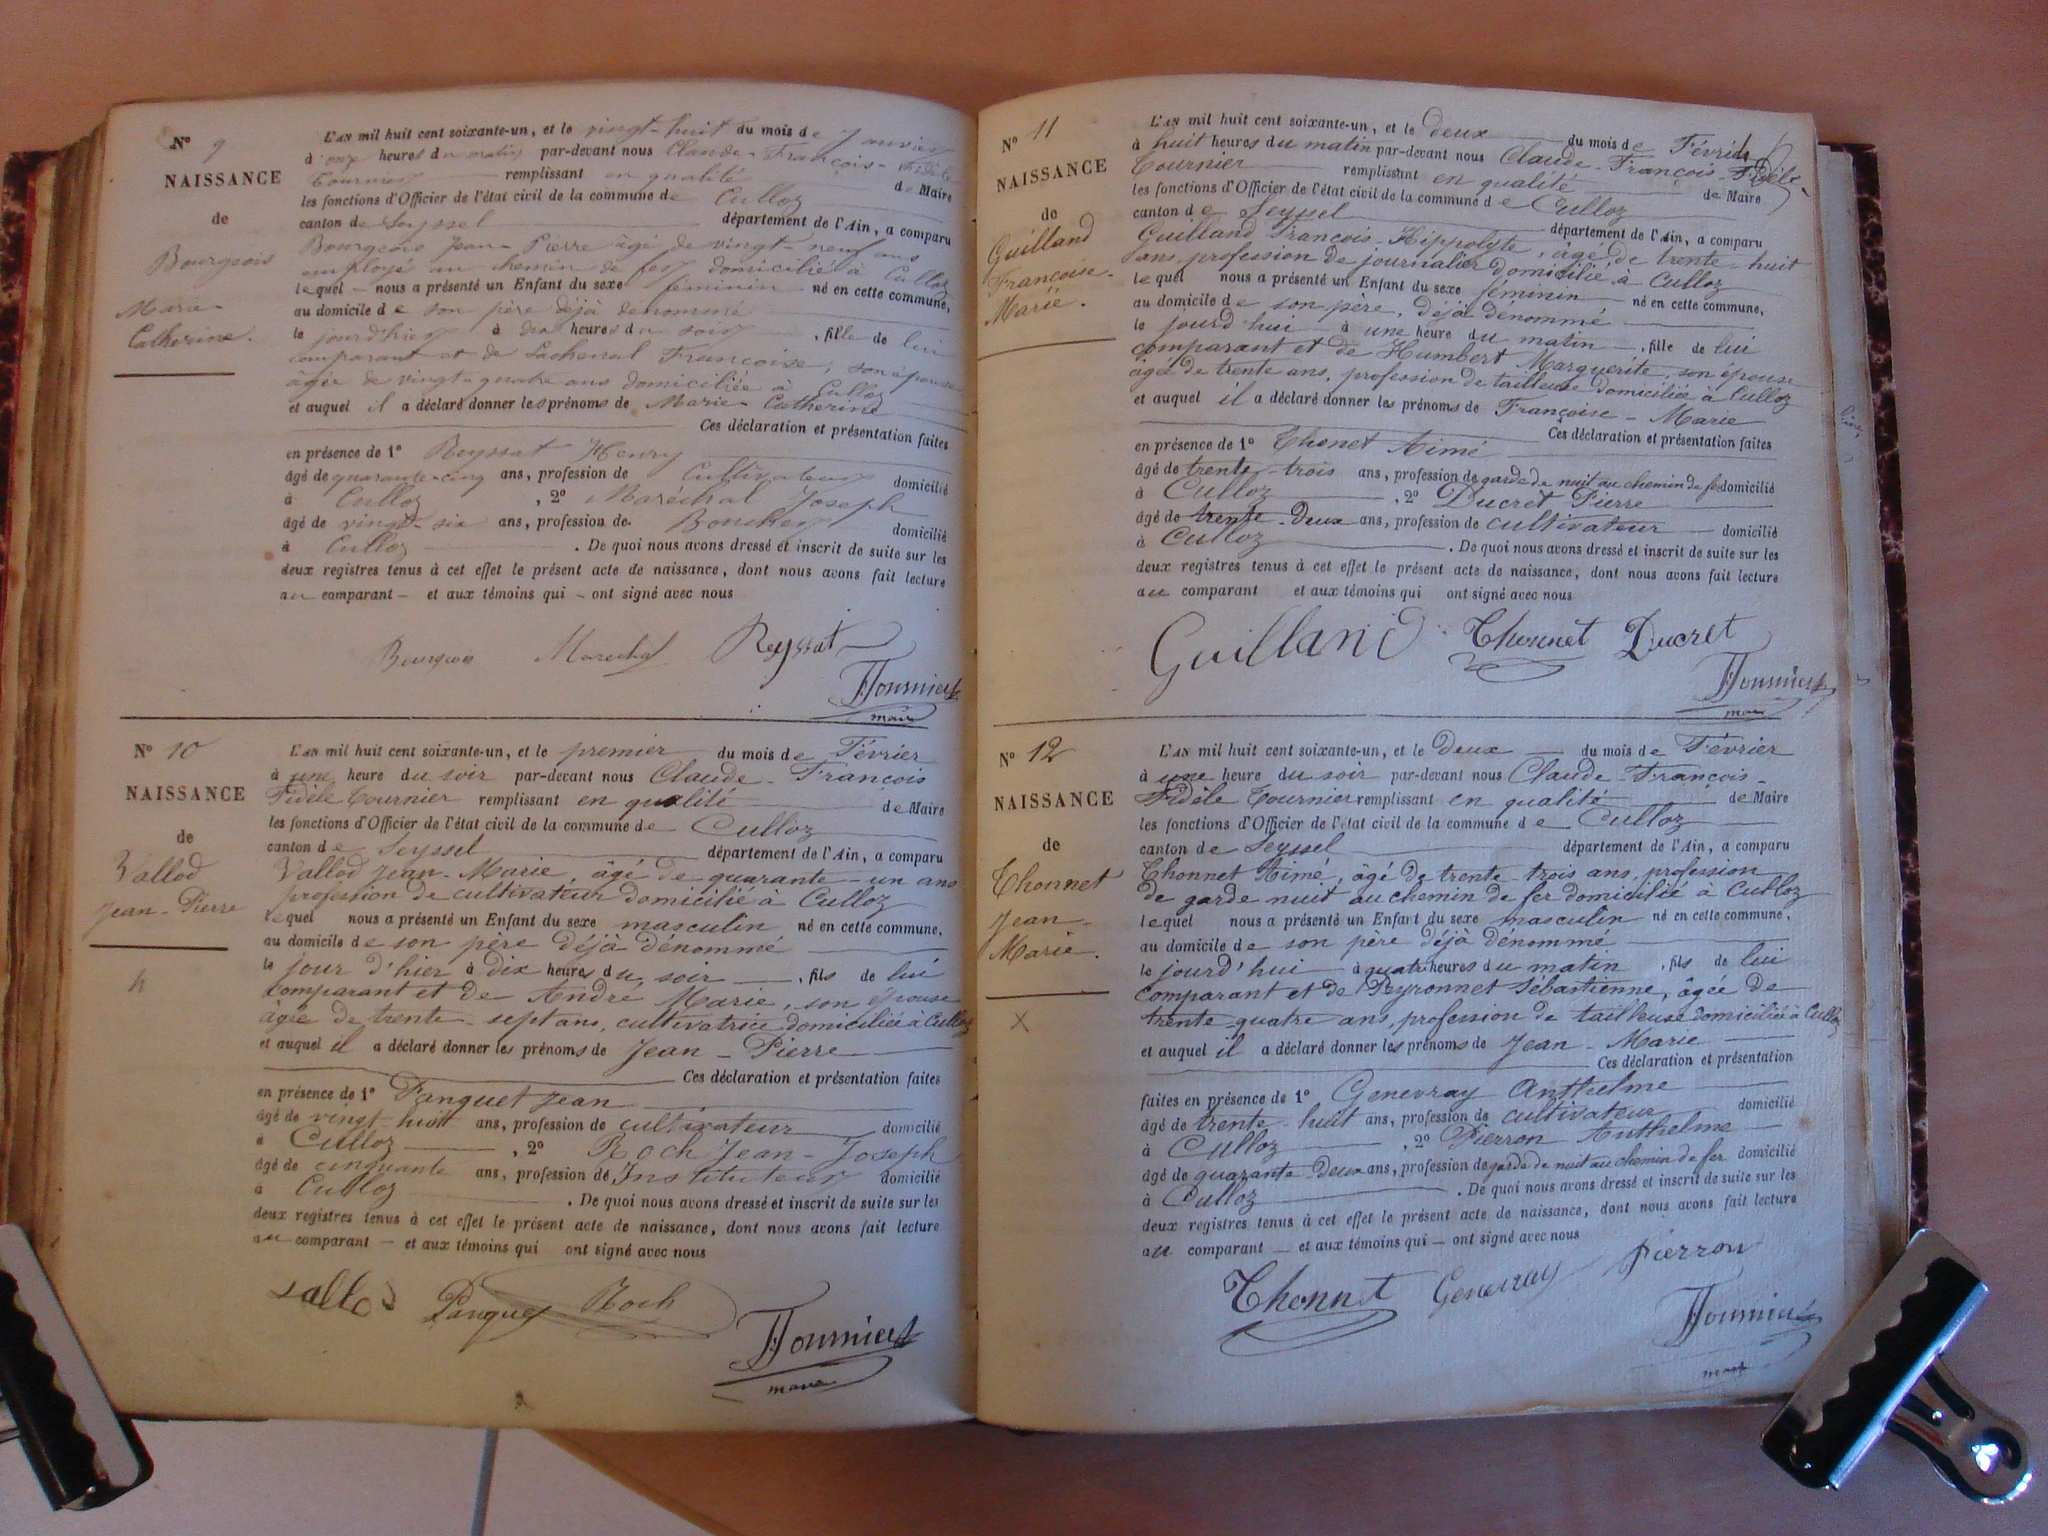 N° 9
NAISSANCE
de
Bourgeois
Marie-
Catherine.
L'AN mil huit cent soixante-un, et le vingt-huit du mois de Janvier
à onze heures du matin par-devant nous Claude-François-Fidèle
Tournier remplissant en qualité de Maire
les fonctions d'Officier de l'état civil de la commune de Culloz
canton de Seyssel département de l'Ain, a comparu
Bourgeois Jean-Pierre âgé de vingt-neuf ans
employé au chemin de fer domicilié à Culloz
lequel nous a présenté un Enfant du sexe féminin né en cette commune,
au domicile de son père déjà dénommé
le jourd'hier à dix heures du soir, fille de lui
comparant et de Lachenal Françoise, son épouse
âgée de vingt-quatre ans domiciliée à Culloz
et auquel il a déclaré donner les prénoms de Marie-Catherine
Ces déclaration et présentation faites
en présence de 1° Reyssat Henry
âgé de quarante-cinq ans, profession de Cultivateur domicilié
à Culloz, 2° Maréchal Joseph
âgé de vingt-six ans, profession de Boucher domicilié
à Culloz. De quoi nous avons dressé et inscrit de suite sur les
deux registres tenus à cet effet le présent acte de naissance, dont nous avons fait lecture
au comparant - et aux témoins qui - ont signé avec nous
Bourgeois Marechal Reyssat
Tournier
maire
N° 10
NAISSANCE
de
Vallod
Jean-Pierre
h
L'AN mil huit cent soixante-un, et le premier du mois de Février
à une heure du soir par-devant nous Claude-François
Fidèle Tournier remplissant en qualité de Maire
les fonctions d'Officier de l'état civil de la commune de Culloz
canton de Seyssel département de l'Ain, a comparu
Vallod Jean-Marie, âgé de quarante-un ans
profession de cultivateur domicilié à Culloz
lequel nous a présenté un Enfant du sexe masculin né en cette commune,
au domicile de son père déjà dénommé
le jour d'hier à dix heures du soir, fils de lui
comparant et de André Marie, son épouse
âgée de trente-sept ans, cultivatrice domiciliée à Culloz
et auquel il a déclaré donner les prénoms de Jean-Pierre
Ces déclaration et présentation faites
en présence de 1° Panquet Jean
âgé de vingt-huit ans, profession de cultivateur domicilié
à Culloz, 2° Roch Jean-Joseph
âgé de cinquante ans, profession de Instituteur domicilié
à Culloz. De quoi nous avons dressé et inscrit de suite sur les
deux registres tenus à cet effet le présent acte de naissance, dont nous avons fait lecture
au comparant - et aux témoins qui ont signé avec nous
Panquet Roch
Tournier
maire
N° 11
NAISSANCE
de
Guilland
Françoise-
Marie.
L'AN mil huit cent soixante-un, et le deux du mois de Février
à huit heures du matin par-devant nous Claude-François-Fidèle
Tournier remplissant en qualité de Maire
les fonctions d'Officier de l'état civil de la commune de Culloz
canton de Seyssel département de l'Ain, a comparu
Guilland François-Hippolyte, âgé de trente-huit
ans, profession de journalier domicilié à Culloz
lequel nous a présenté un Enfant du sexe féminin né en cette commune,
au domicile de son père, déjà dénommé
le jourd'hui à une heure du matin, fille de lui
comparant et de Humbert Marguerite, son épouse
âgée de trente ans, profession de tailleuse domiciliée à Culloz
et auquel il a déclaré donner les prénoms de Françoise-Marie
Ces déclaration et présentation faites
en présence de 1° Thonet Aimé
âgé de trente-trois ans, profession de garde de nuit au chemin de fer domicilié
à Culloz, 2° Ducret Pierre
âgé de trente-deux ans, profession de cultivateur domicilié
à Culloz. De quoi nous avons dressé et inscrit de suite sur les
deux registres tenus à cet effet le présent acte de naissance, dont nous avons fait lecture
au comparant et aux témoins qui ont signé avec nous
Guilland Thonnet Ducret
Tournier
maire
N° 12
NAISSANCE
de
Thonnet
Jean-
Marie.
X
L'AN mil huit cent soixante-un, et le Deux du mois de Février
à une heure du soir par-devant nous Claude-François-
Fidèle Tournier remplissant en qualité de Maire
les fonctions d'Officier de l'état civil de la commune de Culloz
canton de Seyssel département de l'Ain, a comparu
Thonnet Aimé, âgé de trente-trois ans, profession
de garde nuit au chemin de fer domicilié à Culloz
lequel nous a présenté un Enfant du sexe masculin né en cette commune,
au domicile de son père déjà dénommé
le jourd'hui à quatre heures du matin, fils de lui
comparant et de Peyronnet Sébastienne, âgée de
trente-quatre ans, profession de tailleuse domiciliée à Culloz
et auquel il a déclaré donner les prénoms de Jean-Marie
Ces déclaration et présentation
faites en présence de 1° Genevray Anthelme
âgé de trente-huit ans, profession de cultivateur domicilié
à Culloz, 2° Pierron Anthelme
âgé de quarante-deux ans, profession de garde de nuit au chemin de fer domicilié
à Culloz. De quoi nous avons dressé et inscrit de suite sur les
deux registres tenus à cet effet le présent acte de naissance, dont nous avons fait lecture
au comparant - et aux témoins qui - ont signé avec nous
Thonnet Genevray Pierron
Tournier
maire